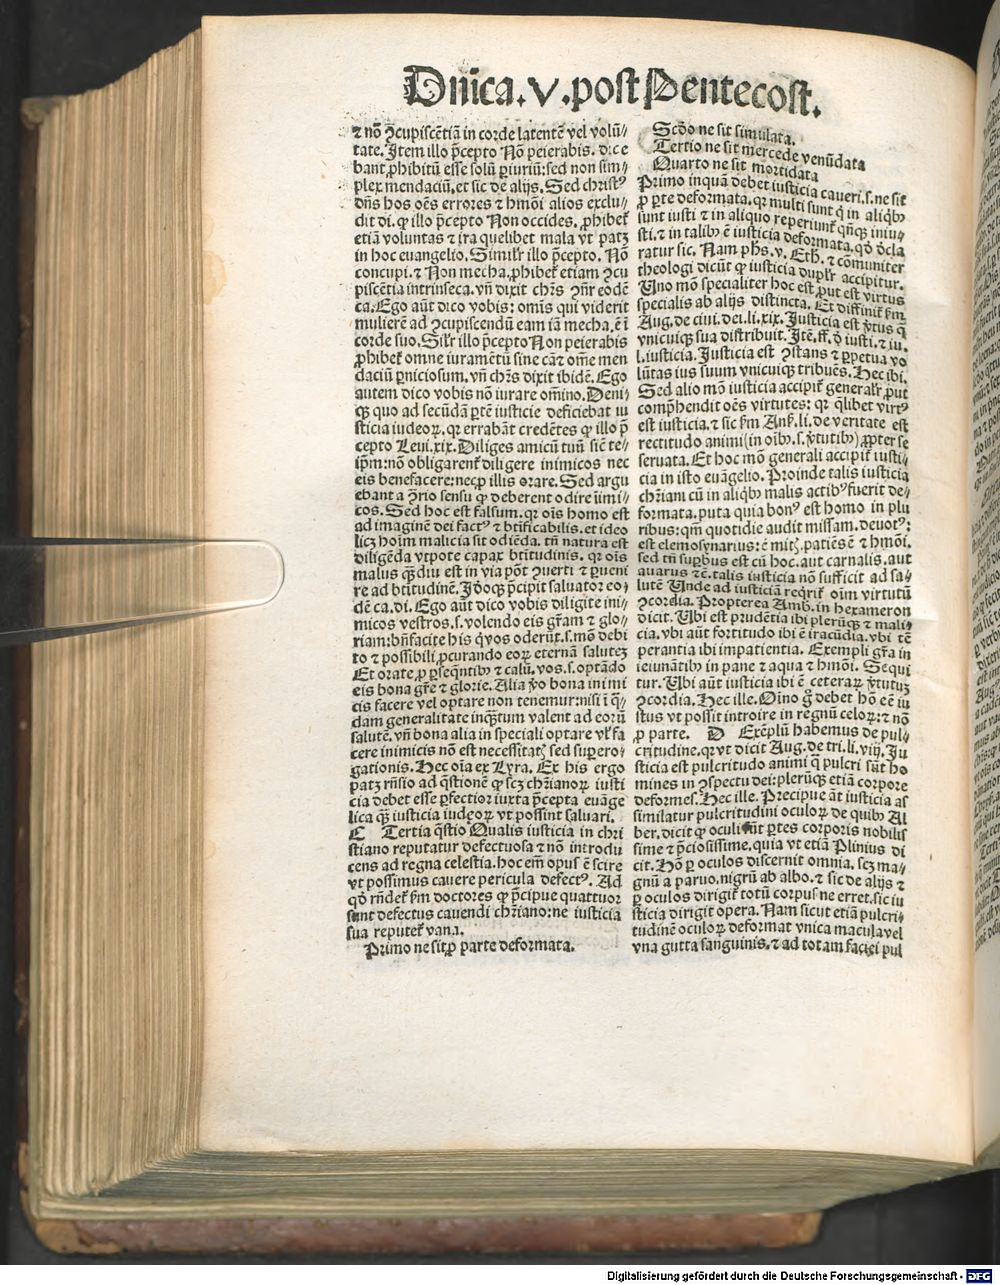 Dn̄ica.V.post Pentecost.
⁊ nō ꝯcupiscētiā in corde latentē vel volū⸗
tate. Item illo p̄cepto Nō peierabis. dice
bant ꝓhibitū esse solū ꝑiuriū: sed non sim⸗
plex mendaciū. et sic de alijs. Sed christꝰ
dn̄s hos oēs errores ⁊ hmōi alios exclu⸗
dit di. ꝙ illo p̄cepto Non occides. ꝓhibet̄
etiā voluntas ⁊ ira quelibet mala vt patꝫ
in hoc euangelio. Simil'r illo p̄cepto. Nō
concupi. ⁊ Non mecha. ꝓhibet̄ etiam ꝯcu
piscētia intrinseca. vn̄ dixit chr̄s ꝯn̄r eodē
ca. Ego aūt dico vobis: omīs qui viderit
mulierē ad ꝯcupiscendū eam iā mecha. ē ī
corde suo. Sil'r illo p̄cepto Non peierabis
ꝓhibet̄ omne iuramētū sine cāt̄ om̄e men
daciū ꝑniciosum. vn̄ chr̄s dixit ibidē. Ego
autem dico vobis nō iurare om̄ino. Deni⸗
qꝫ quo ad secūdā ꝑtē iusticie deficiebat iu
sticia iudeoꝝ. qꝛ errabāt credētes ꝙ illo p̄
cepto Leui. xix. Diliges amicū tuū sic te⸗
ip̄m: nō obligarent̄ diligere inimicos nec
eis benefacere: necꝫ ꝓ illis orare. Sed argu
ebant a ꝯrio sensu ꝙ deberent odire inimi⸗
cos. Sed hoc est falsum. qꝛ oīs homo est
ad imaginē dei factꝰ ⁊ btīficabilis. et ideo
licꝫ hoīm malicia sit odiēda. tn̄ natura est
diligēda vtpote capax btītudinis. qꝛ oīs
malus qꝫdiu est in via pōt ꝯuerti ⁊ ꝑueni
re ad btītudinē. Idoqꝫ p̄cipit saluator eo⸗
dē ca. di. Ego aūt dico vobis diligite ini⸗
micos vestros. s. volendo eis gr̄am ⁊ glo⸗
riam: bn̄facite his q̄ vos oderūt. s. mō debi
to ⁊ possibili ꝓcurando eoꝝ eternā salutez
Et orate ꝓ ꝑseq̄ntibꝰ ⁊ calū. vos. s. optādo
eis bona gr̄e ⁊ glorie. Alia ꝟo bona inimi
cis facere vel optare non tenemur: nisi ī q̄⸗
dam generalitate inqꝫtum valent ad eorū
salutē. vn̄ bona alia in speciali optare vl' fa
cere inimicis nō est necessitatꝭ sed suꝑero⸗
gationis. Hec oīa ex Lyra. Ex his ergo
patꝫ rn̄sio ad q̄stionē ꝙ scꝫ chr̄ianoꝝ iusti
cia debet esse ꝑfectior iuxta p̄cepta euāge
lica qꝫ iusticia iudeoꝝ vt possint saluari.
C Tertia q̄stio Qualis iusticia in chri
stiano reputatur defectuosa ⁊ nō introdu
cens ad regna celestia. hoc em̄ opus ē scire
vt possimus cauere pericula defectꝰ. Ad
qd̄ rn̄det̄ ẜm doctores ꝙ p̄cipue quattuor
sunt defectus cauendi chr̄iano: ne iusticia
sua reputet̄ vana.
Primo ne sit ꝓ parte deformata.
Scd̄o ne sit simulata.
Tertio ne sit mercede venūdata
Quarto ne sit mortidata
Primo inquā debet iusticia caueri. s. ne sit
ꝓ ꝑte deformata. qꝛ multi sunt q̄ in aliqbꝰ
sunt iusti ⁊ in aliquo reperiunt̄ qn̄qꝫ iniu⸗
sti. ⁊ in talibꝰ ē iusticia deformata. qd̄ dcla
ratur sic. Nam ph̄s. v. Eth. ⁊ cōmuniter
theologi dicūt ꝙ iusticia dupl'r accipitur.
Uno mō specialiter hoc est ꝓut est virtus
specialis ab alijs distincta. Et diffinit̄ ẜm
Aug. de ciui. dei. li. xix. Justicia est ꝟtus q̄
vnicuiqꝫ sua distribuit. Itē. ff. d̄ iusti. ⁊ iu.
l. iusticia. Justicia est ꝯstans ⁊ ꝑpetua vo
lūtas ius suum vnicuiqꝫ tribuēs. Hec ibi.
Sed alio mō iusticia accipit̄ general'r ꝓut
comp̄hendit oēs virtutes: qꝛ qlibet virtꝰ
est iusticia. ⁊ sic ẜm Anß. li. de veritate est
rectitudo animi (in oībꝰ. s. ꝟtutibꝰ) ꝓpter se
seruata. Et hoc mō generali accipit̄ iusti⸗
cia in isto euāgelio. Proinde talis iusticia
chr̄iani cū in aliqbꝰ malis actibꝰ fuerit de⸗
formata. puta quia bonꝰ est homo in plu
ribus: qm̄ quotidie audit missam. deuotꝰ:
est elemosynarius: ē mitꝭ. patiēs ē ⁊ hmōi.
sed tn̄ suꝑbus est cū hoc. aut carnalis. aut
auarus ⁊c̄. talis iusticia nō sufficit ad sa⸗
lutē Unde ad iusticiā reqrit̄ oīm virtutū
ꝯcordia. Propterea Amb. in hexameron
dicit. Ubi est prudētia ibi plerūqꝫ ⁊ mali⸗
cia. vbi aūt fortitudo ibi ē iracūdia. vbi tē
perantia ibi impatientia. Exempli gr̄a in
ieiunātibꝰ in pane ⁊ aqua ⁊ hmōi. Sequi
tur. Ubi aūt iusticia ibi ē ceteraꝝ ꝟtutuꝫ
ꝯcordia. Hec ille. Oīno g̊ debet hō eē iu
stus vt possit introire in regnū celoꝝ: ⁊ nō
ꝓ parte. D Exēplū habemus de pul⸗
critudine. qꝛ vt dicit Aug. de tri. li. viij. Ju
sticia est pulcritudo animi q̄ pulcri sūt ho
mines in ꝯspectu dei: plerūqꝫ etiā corpore
deformes. Hec ille. Precipue āt iusticia as
similatur pulcritudini oculoꝝ de quibꝰ Al
ber. dicit ꝙ oculi sūt ꝑtes corporis nobilis
sime ⁊ p̄ciosissime. quia vt etiā Plinius di
cit. Hō ꝑ oculos discernit omnia. scꝫ ma⸗
gnū a paruo. nigrū ab albo. ⁊ sic de alijs ⁊
ꝑ oculos dirigit̄ totū corpus ne erret. sic iu
sticia dirigit opera. Nam sicut etiā pulcri⸗
tudinē oculoꝝ deformat vnica macula vel
vna gutta sanguinis. ⁊ ad totam faciei pul
Digitalisierung gefördert durch die Deutsche Forschungsgemeinschaft - DFG